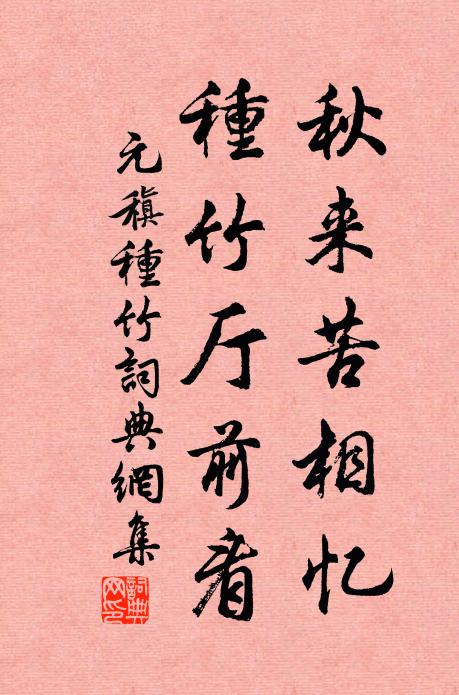 秋来苦相忆
種竹厅前看
元稹種竹詞典網集
詞典網印